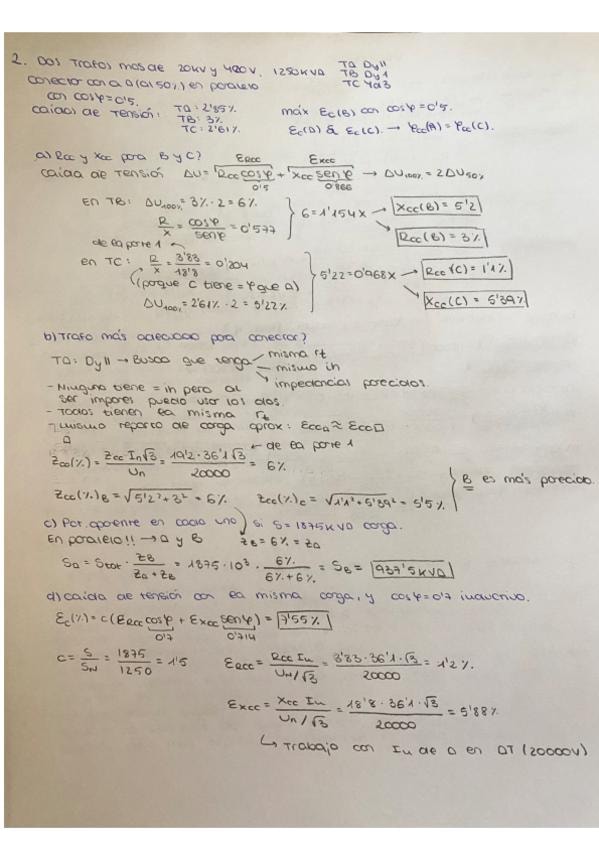 2. Dos trafos más de 20KV y 420V, 1250KVA TA Dy11
TB Dy1
conectar con A (al 50%) en paralelo TC Yd3
con cosφ=0'5.
caídas de tensión: TA: 2'85% máx Ec(B) con cosφ=0'5.
TB: 3%
TC: 2'61% Ec(A) & Ec(C). → φcc(A) = φcc(C).
a) Rcc y Xcc para B y C? ERCC EXCC
caída de tensión ΔU = Rcc cosφ + Xcc senφ → ΔU100% = 2ΔU50%
0'5 0'866
EN TB: ΔU100% = 3% · 2 = 6%
R/X = cosφ/senφ = 0'577
6 = 1'154X → Xcc(B) = 5'2
Rcc(B) = 3%
de la parte 1
en TC: R/X = 3'83/18'8 = 0'204
(porque C tiene = φ que A)
ΔU100% = 2'61% · 2 = 5'22%
5'22 = 0'968X → Rcc(C) = 1'1%
Xcc(C) = 5'39%
b) Trafo más adecuado para conectar?
TA: Dy11 → Busco que tenga misma rt
mismo ih
impedancias parecidas.
- Ninguno tiene = ih pero al
ser impares puedo usar los dos.
- Todos tienen la misma rt
- mismo reparto de carga aprox: EccA ≈ Ecc□
A
← de la parte 1
Zcc(%) = Zcc In√3/Un = 19'2 · 36'1√3/20000 = 6%
Zcc(%)B = √5'2²+3² = 6% Zcc(%)C = √1'1²+5'39² = 5'5%
B es más parecido.
c) Pot. aparente en cada uno si S = 1875KVA carga.
En paralelo!! → A y B ZB = 6% = ZA
SA = Stot · ZB/(ZA+ZB) = 1875·10³ · 6%/(6%+6%) = SB = 937'5KVA
d) caída de tensión con la misma carga, y cosφ=0'7 inductivo.
Ec(%) = c(ERCC cosφ + EXCC senφ) = 7'55%
0'7 0'714
c = S/SN = 1875/1250 = 1'5 ERCC = Rcc In/(UN/√3) = 3'83 · 36'1 · √3/20000 = 1'2%.
EXCC = Xcc In/(Un/√3) = 18'8 · 36'1 · √3/20000 = 5'88%
↳ Trabajo con In de A en AT (20000V)